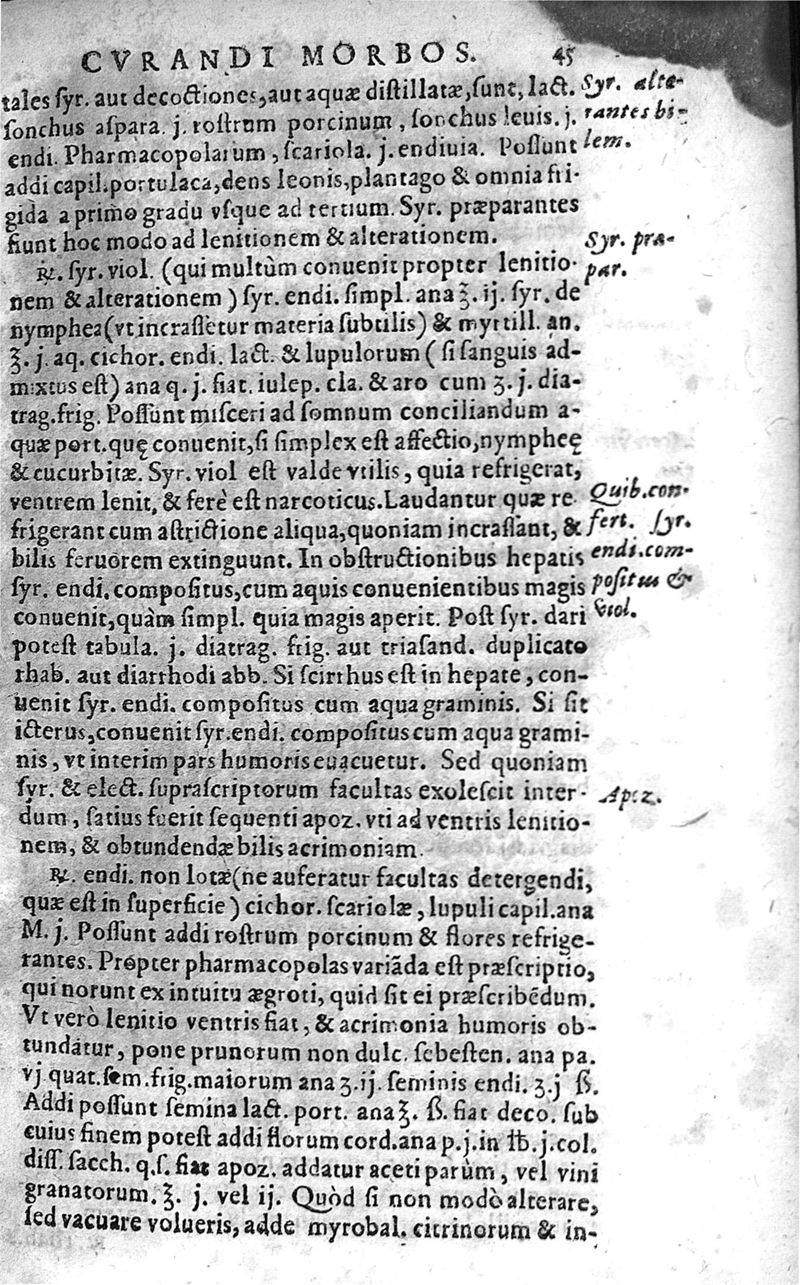 CVRANDI MORBOS. 45
tales ſyr. aut decoctiones, aut aquæ diſtillatæ, ſunt, lact.
ſonchus aſpara. j. roſtrum porcinum, ſonchus leuis. j.
endi. Pharmacopolarum, ſcariola. j. endiuia. Poſſunt
addi capil. portulaca, dens leonis, plantago & omnia fri-
gida a primo gradu vſque ad tertium. Syr. præparantes
fiunt hoc modo ad lenitionem & alterationem.
℞. ſyr. viol. (qui multùm conuenit propter lenitio-
nem & alterationem) ſyr. endi. ſimpl. ana ℥. ij. ſyr. de
nymphea (vt incraſſetur materia ſubtilis) & myrtill. an.
℥. j. aq. cichor. endi. lact. & lupulorum (ſi ſanguis ad-
mixtus eſt) ana q. j. fiat. iulep. cla. & aro cum ʒ. j. dia-
trag. frig. Poſſunt miſceri ad ſomnum conciliandum a-
quæ port. quę conuenit, ſi ſimplex eſt affectio, nympheę
& cucurbitæ. Syr. viol eſt valde vtilis, quia refrigerat,
ventrem lenit, & ferè eſt narcoticus. Laudantur quæ re
frigerant cum aſtrictione aliqua, quoniam incraſſant, &
bilis feruorem extinguunt. In obſtructionibus hepatis
ſyr. endi. compoſitus, cum aquis conuenientibus magis
conuenit, quàm ſimpl. quia magis aperit. Poſt ſyr. dari
poteſt tabula. j. diatrag. frig. aut triaſand. duplicato
rhab. aut diarrhodi abb. Si ſcirrhus eſt in hepate, con-
uenit ſyr. endi. compoſitus cum aqua graminis. Si ſit
icterus, conuenit ſyr. endi. compoſitus cum aqua grami-
nis, vt interim pars humoris euacuetur. Sed quoniam
ſyr. & elect. ſupraſcriptorum facultas exoleſcit inter-
dum, ſatius fuerit ſequenti apoz. vti ad ventris lenitio-
nem, & obtundendæ bilis acrimoniam.
℞. endi. non lotæ (ne auferatur facultas detergendi,
quæ eſt in ſuperficie) cichor. ſcariolæ, lupuli capil. ana
M. j. Poſſunt addi roſtrum porcinum & flores refrige-
rantes. Propter pharmacopolas variãda eſt præſcriptio,
qui norunt ex intuitu ægroti, quid ſit ei præſcribẽdum.
Vt verò lenitio ventris fiat, & acrimonia humoris ob-
tundatur, pone prunorum non dulc. ſebeſten. ana pa.
vj quat. ſem. frig. maiorum ana ʒ. ij. ſeminis endi. ʒ. j ß.
Addi poſſunt ſemina lact. port. ana ℥. ß. fiat deco. ſub
cuius finem poteſt addi florum cord. ana p. j. in ℔. j. col.
diſſ. ſacch. q. ſ. fiat apoz. addatur aceti parùm, vel vini
granatorum. ℥. j. vel ij. Quòd ſi non modò alterare,
ſed vacuare volueris, adde myrobal. citrinorum & in-
Syr. alte-
rantes bi-
lem.
Syr. præ-
par.
Quib. con-
fert. ſyr.
endi. com-
poſitus &
viol.
Apoz.